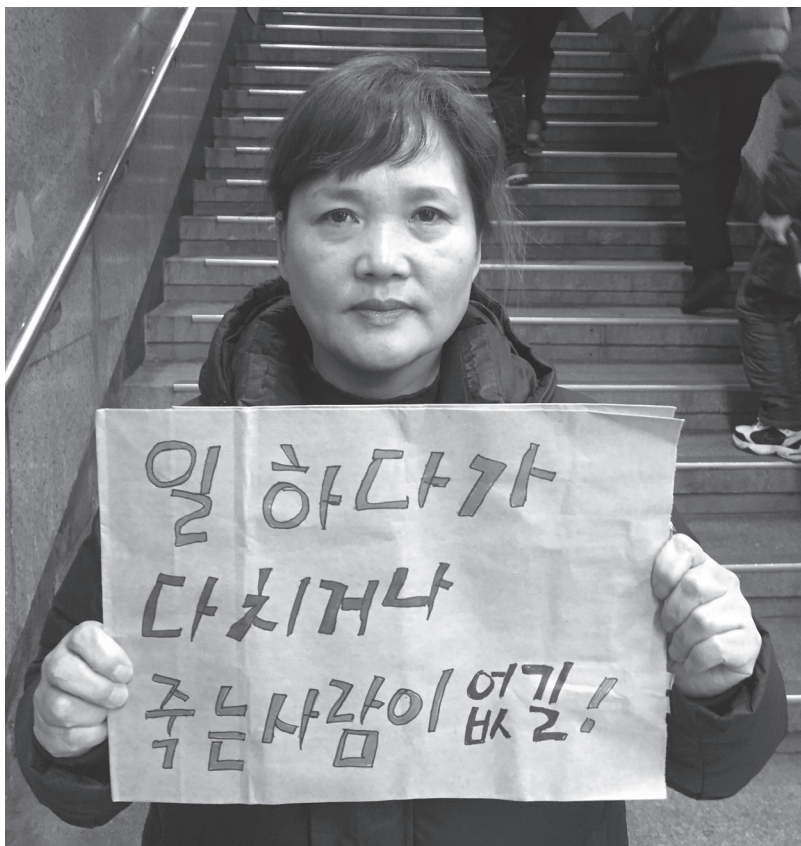 일 하다가
다치거나
죽는사람이 없길!